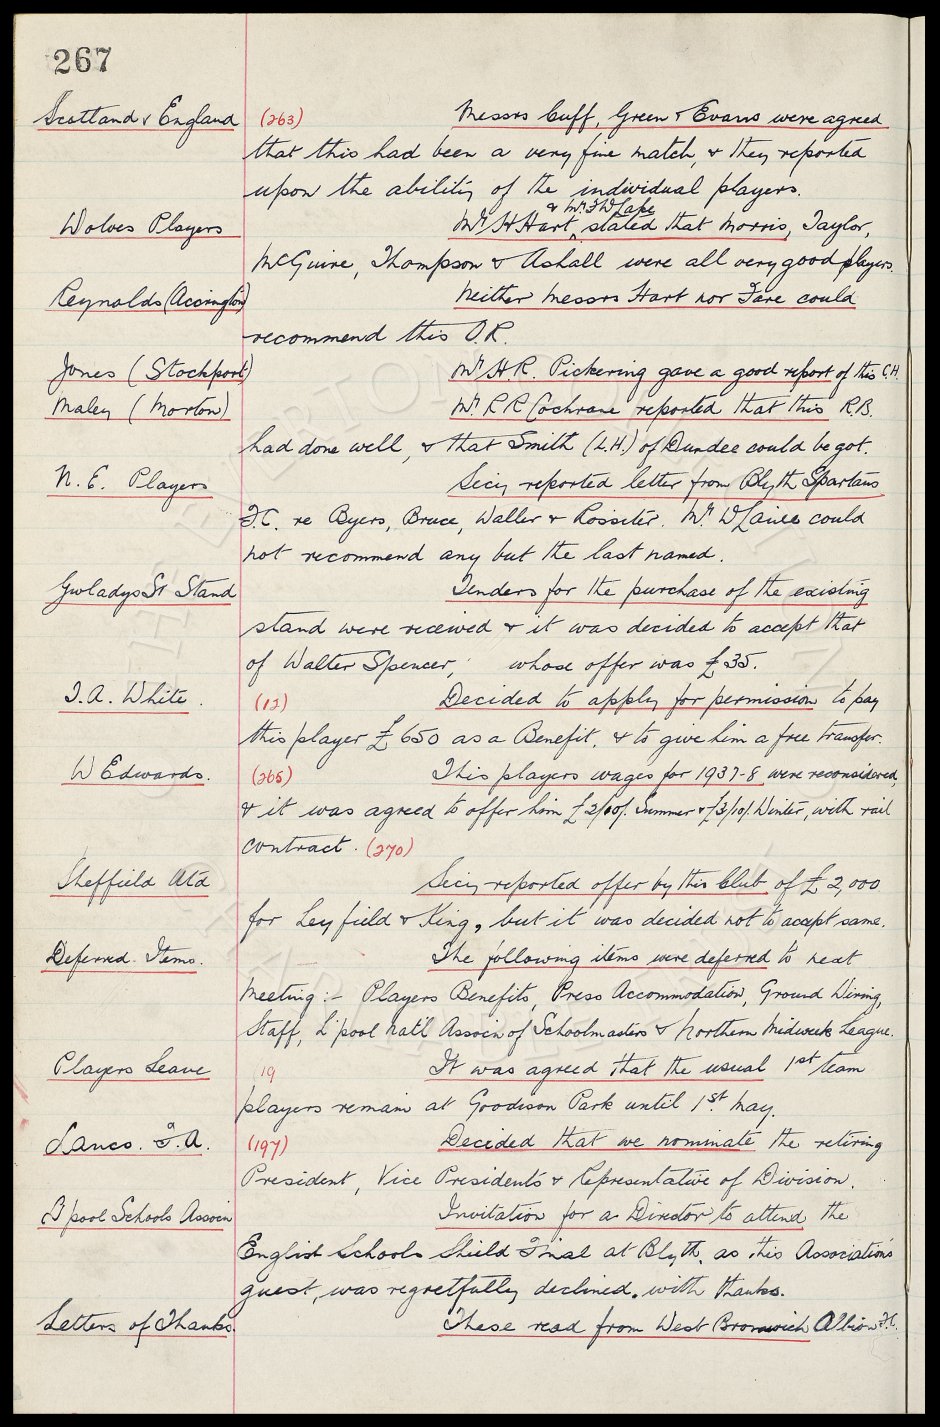 267
Scotland v England (263) Messrs Cuff, Green & Evans were agreed
that this had been a very fine match, & they reported
upon the ability of the individual players.
& Mr. F W Lake
Wolves Players Mr H Hart, stated that Morris, Taylor,
McGuire, Thompson & Ashall were all very good players.
Reynolds (Accrington) Neither Messrs Hart nor Fare could
recommend this O.R.
Jones (Stockport) Mr H.R. Pickering gave a good report of this C.H.
Maley (Morton) Mr R R Cochrane reported that this R.B.
had done well, & that Smith (L.H.) of Dundee could be got.
N. E. Players Secy reported letter from Blyth Spartans
F.C. re Byers, Bruce, Waller & Rossiter. Mr could
not recommend any but the last named.
Gwladys St Stand Tenders for the purchase of the existing
stand were received & it was decided to accept that
of Walter Spencer, whose offer was £35.
T.A. White. (12) Decided to apply for permission to pay
this player £650 as a Benefit, & to give him a free transfer.
W Edwards. (265) This players wages for 1937-8 were reconsidered,
& it was agreed to offer him £2/10/. Summer & £3/10/. Winter, with rail
contract. (270)
Sheffield Utd Secy reported offer by this Club of £2,000
for Leyfield & King, but it was decided not to accept same.
Deferred Items. The following items were deferred to next
Meeting:- Players Benefits, Press Accommodation, Ground Wiring,
Staff, L'pool Nat'l Associn of Schoolmasters & Northern Midweek League.
Players Leave 19 It was agreed that the usual 1st team
players remain at Goodison Park until 1st. May.
Lancs. F.A. (197) Decided that we nominate the retiring
President, Vice Presidents & Representative of Division.
B'pool Schools Associn Invitation for a Director to attend the
English Schools Shield Final at Blyth, as this Association's
guest, was regretfully declined, with thanks.
Letters of Thanks. These read from West Bromwich Albion F.C.